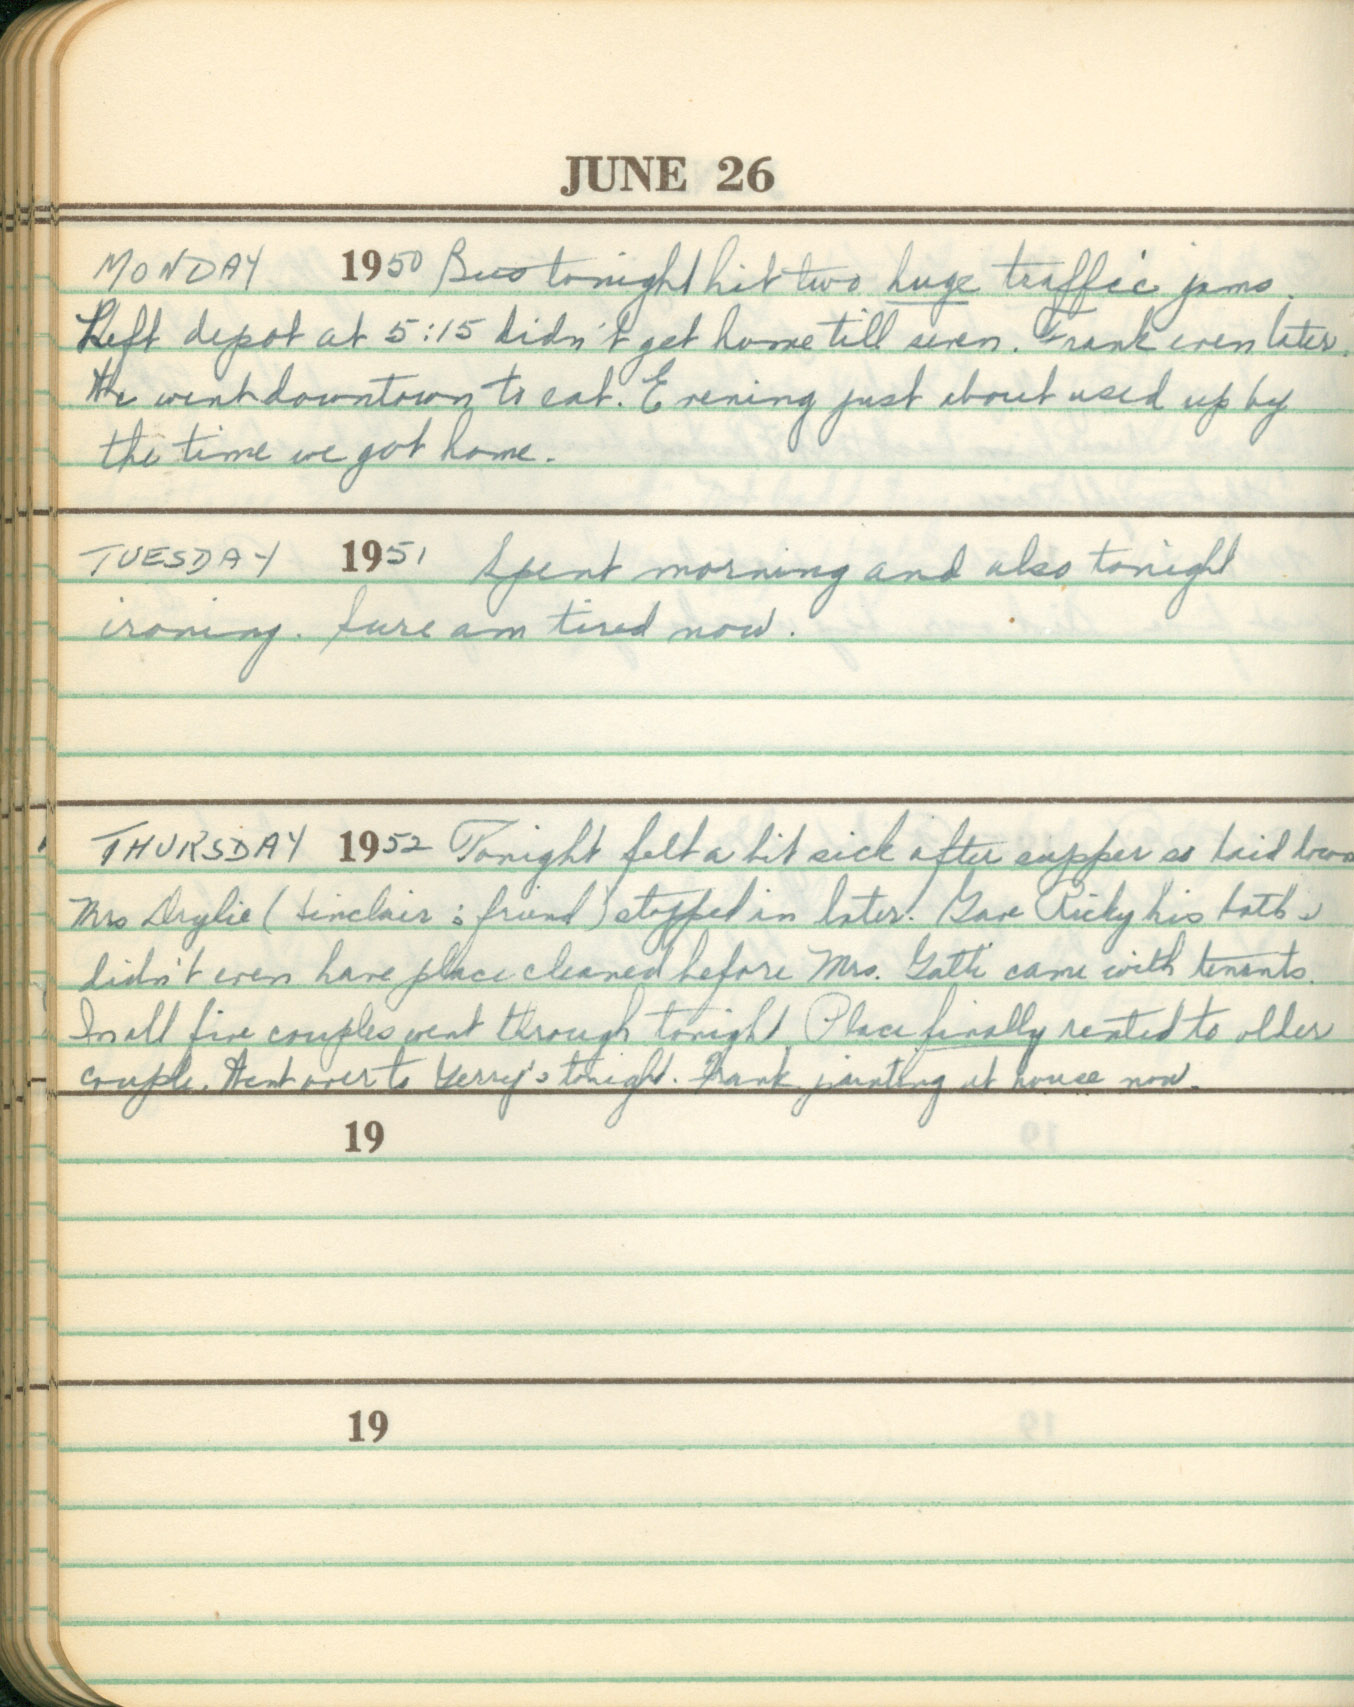 JUNE 26
MONDAY 1950 Bus tonight hit two huge traffic jams.
Left depot at 5:15 didn't get home till seven. Frank even later.
He went downtown to eat. Evening just about used up by
the time we got home.
TUESDAY 1951 Spent morning and also tonight
ironing. Sure am tired now.
THURSDAY 1952 Tonight felt a bit sick after supper so laid down
Mrs Drylie (Sinclair's friend) stopped in later. Gave Ricky his bath &
didn't even have place cleaned before Mrs. Gatti came with tenants.
In all five couples went through tonight. Place finally rented to older
couple. Went over to Gerry's tonight. Frank painting at house now.
19
19